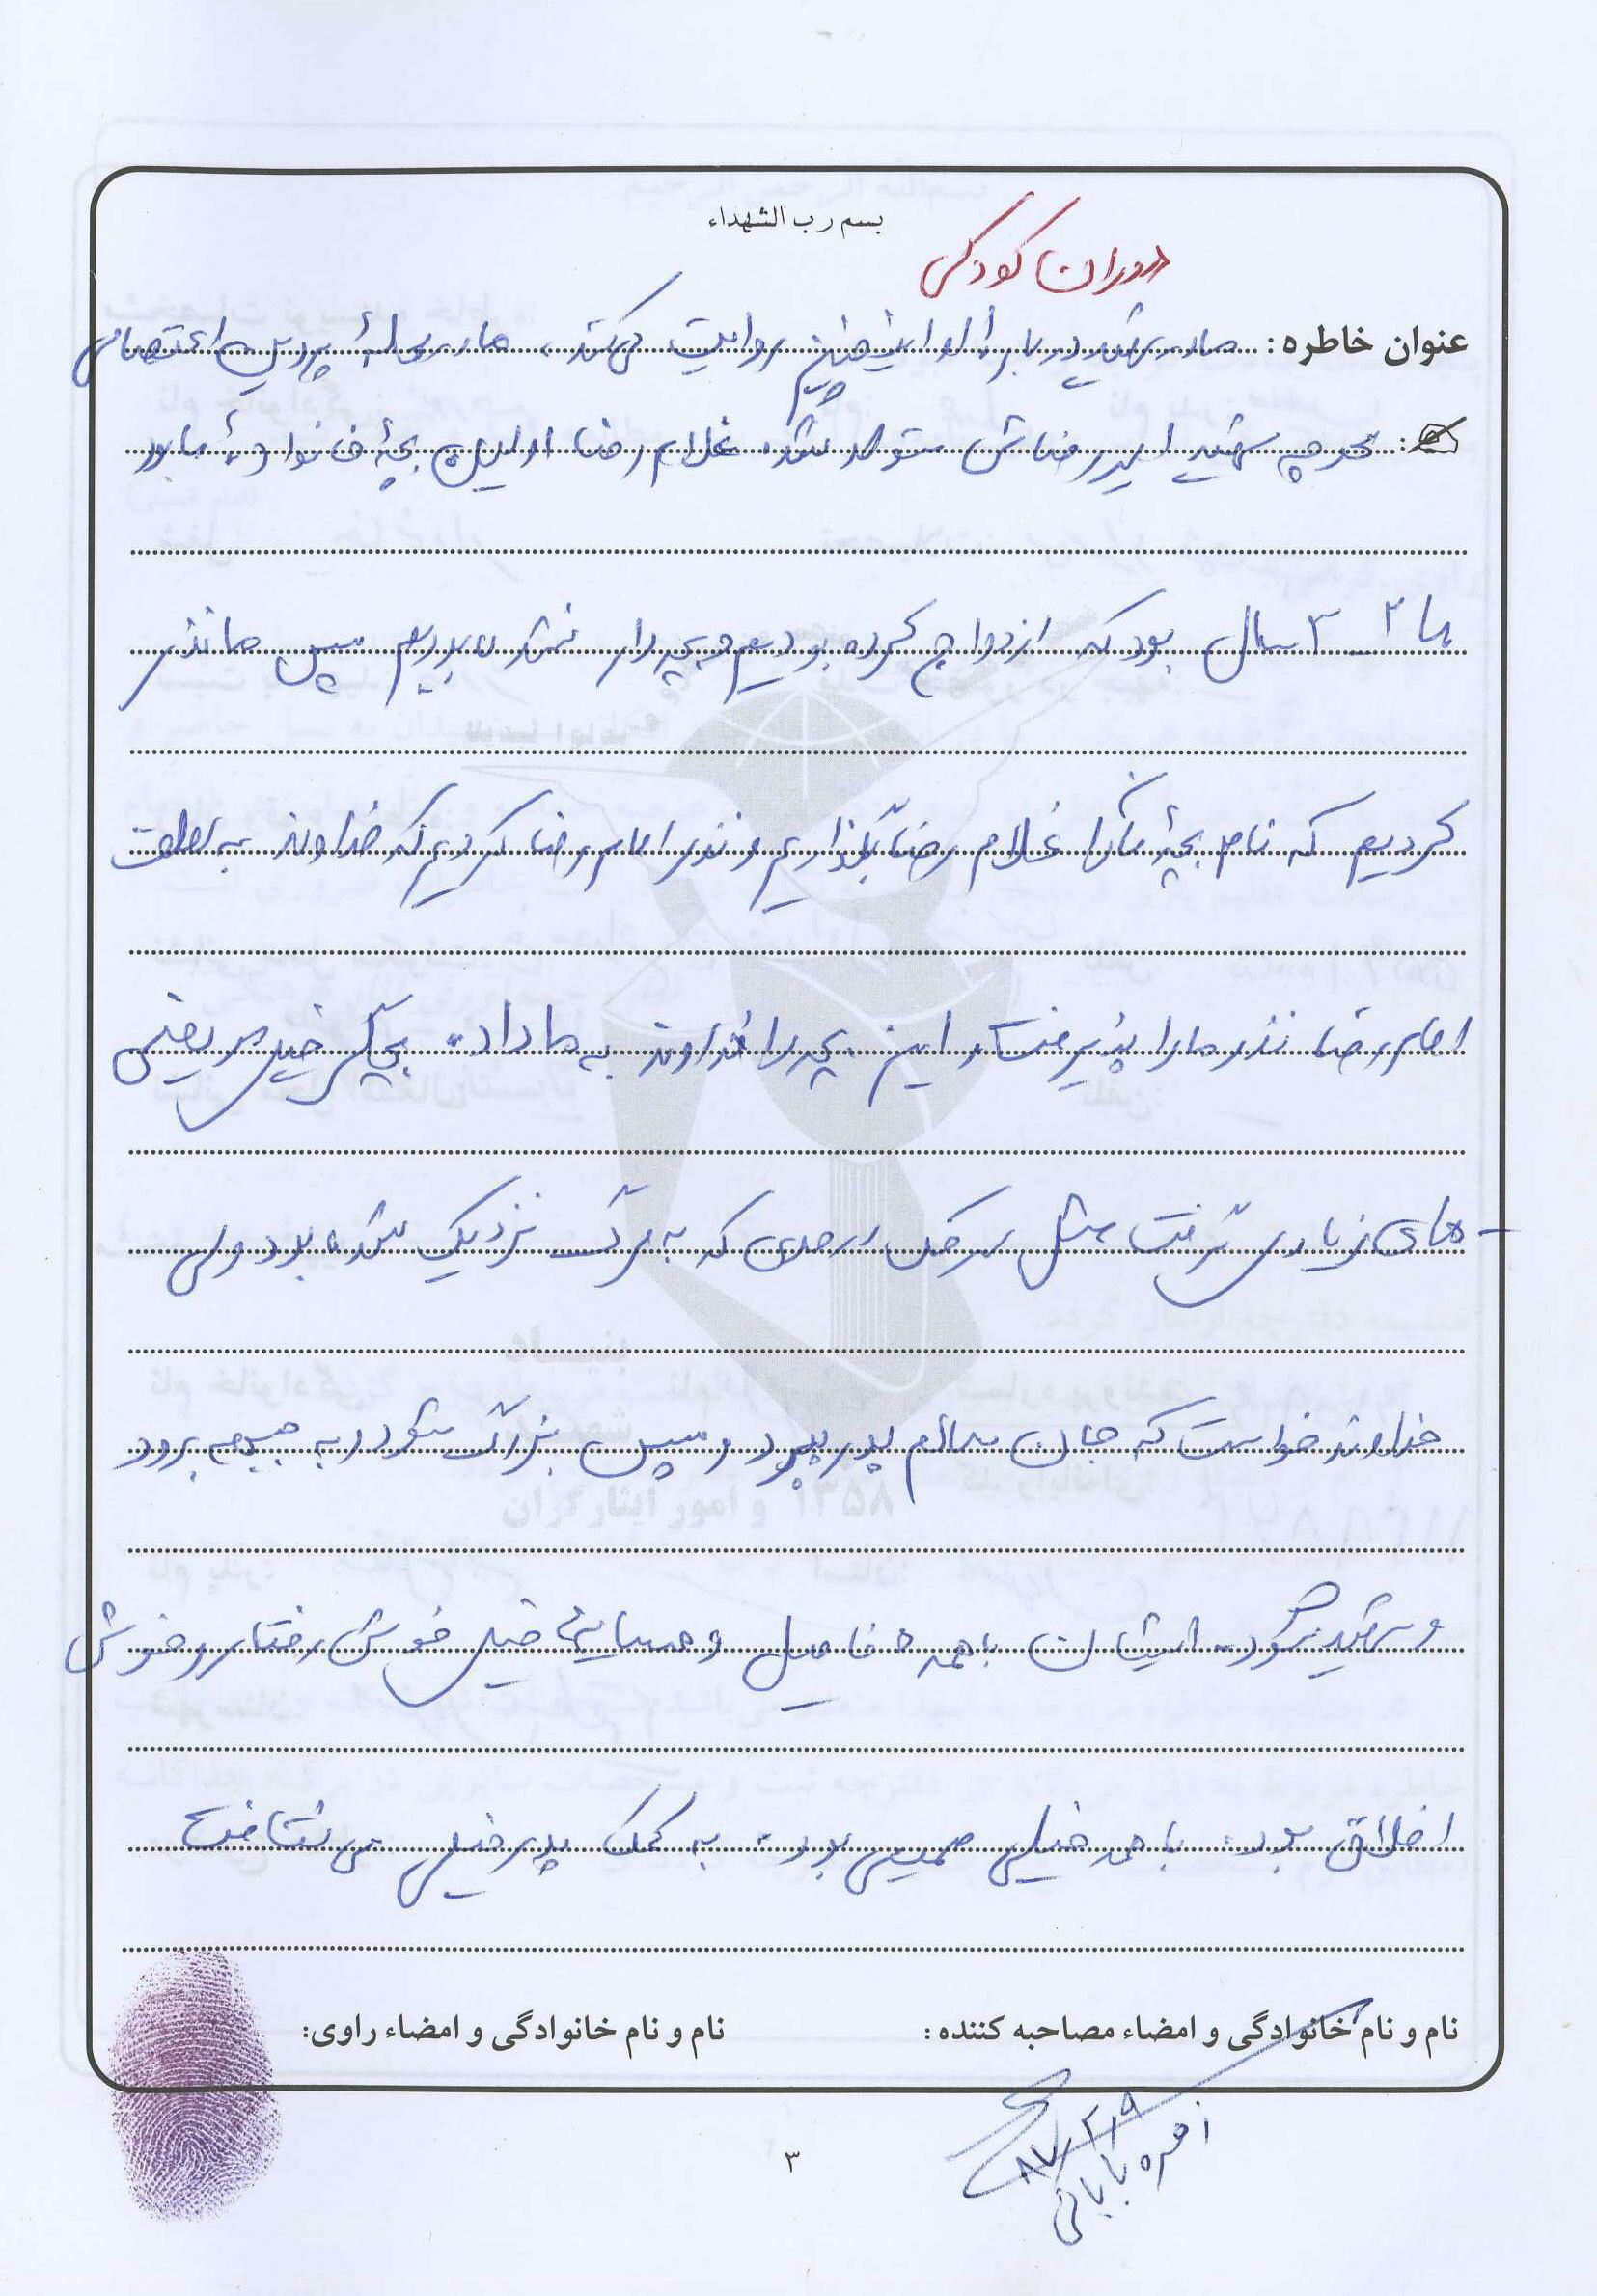 بسم رب الشهداء
دوران کودکی
عنوان خاطره: مادر شهید در باره او این چنین روایت می کند، ما در محله پردیس اعتصامی
شهید امیر رضاش متولد شد. غلام رضا اولین بچهٔ خانوادهٔ ما بود
ما ۲ـ۳ سال بود که ازدواج کرده بودیم و بچه دار نشده بودیم سپس ما نذر
کردیم که نام بچهٔ مان را غلام رضا بگذاریم و نذر امام رضا کردیم که خداوند به
امام رضا نذر ما را پذیرفت و این بچه را خداوند به ما داد. بچگی خیلی مریضی
ـهای زیادی گرفت مثل سرخک و که به مرگ نزدیک شده بود ولی
خداوند خواست که جان سالم بدر ببرد و سپس بزرگ شود و به جبهه برود
و شهید شود. ایشان با همه فامیل و همسایه خیلی خوش رفتار و خوش
اخلاق بود. با همه خیلی صمیمی بود. به کمک پدر خیلی می شتافت
نام و نام خانوادگی و امضاء مصاحبه کننده: نام و نام خانوادگی و امضاء راوی:
۸۷/۲/۹
بابائی
۳